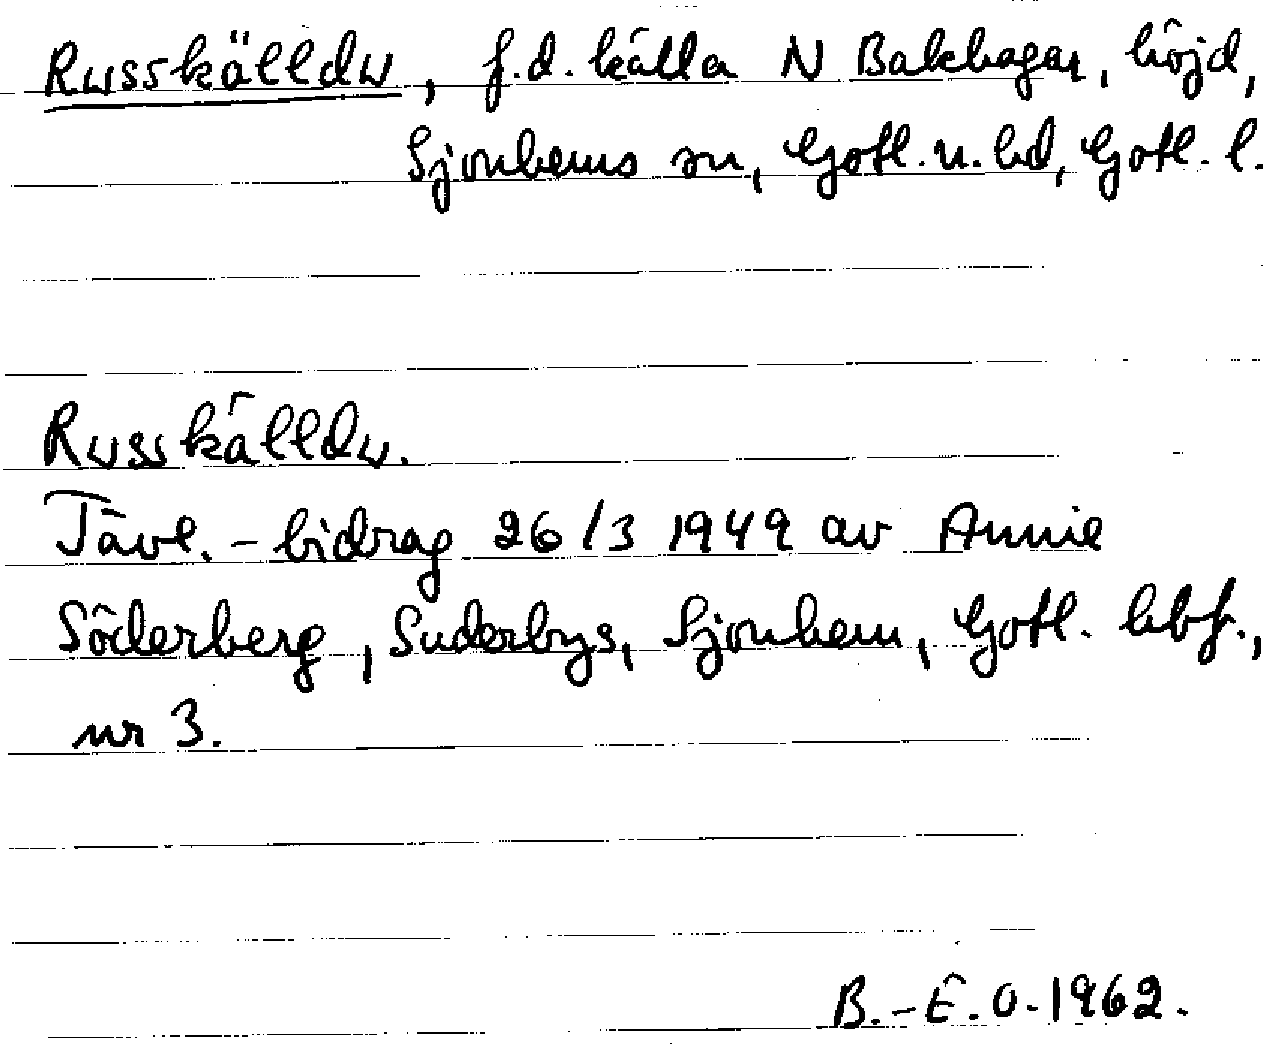 Russkälldu, f.d. källa N Bakhagar, höjd,
Sjonhems sn, Gotl. n. hd, Gotl. l.
Russkälldu.
Tävl.-bidrag 26/3 1949 av Annie
Söderberg, Suderbys, Sjonhem, Gotl. hbf.,
nr 3.
B.-E. O. 1962.